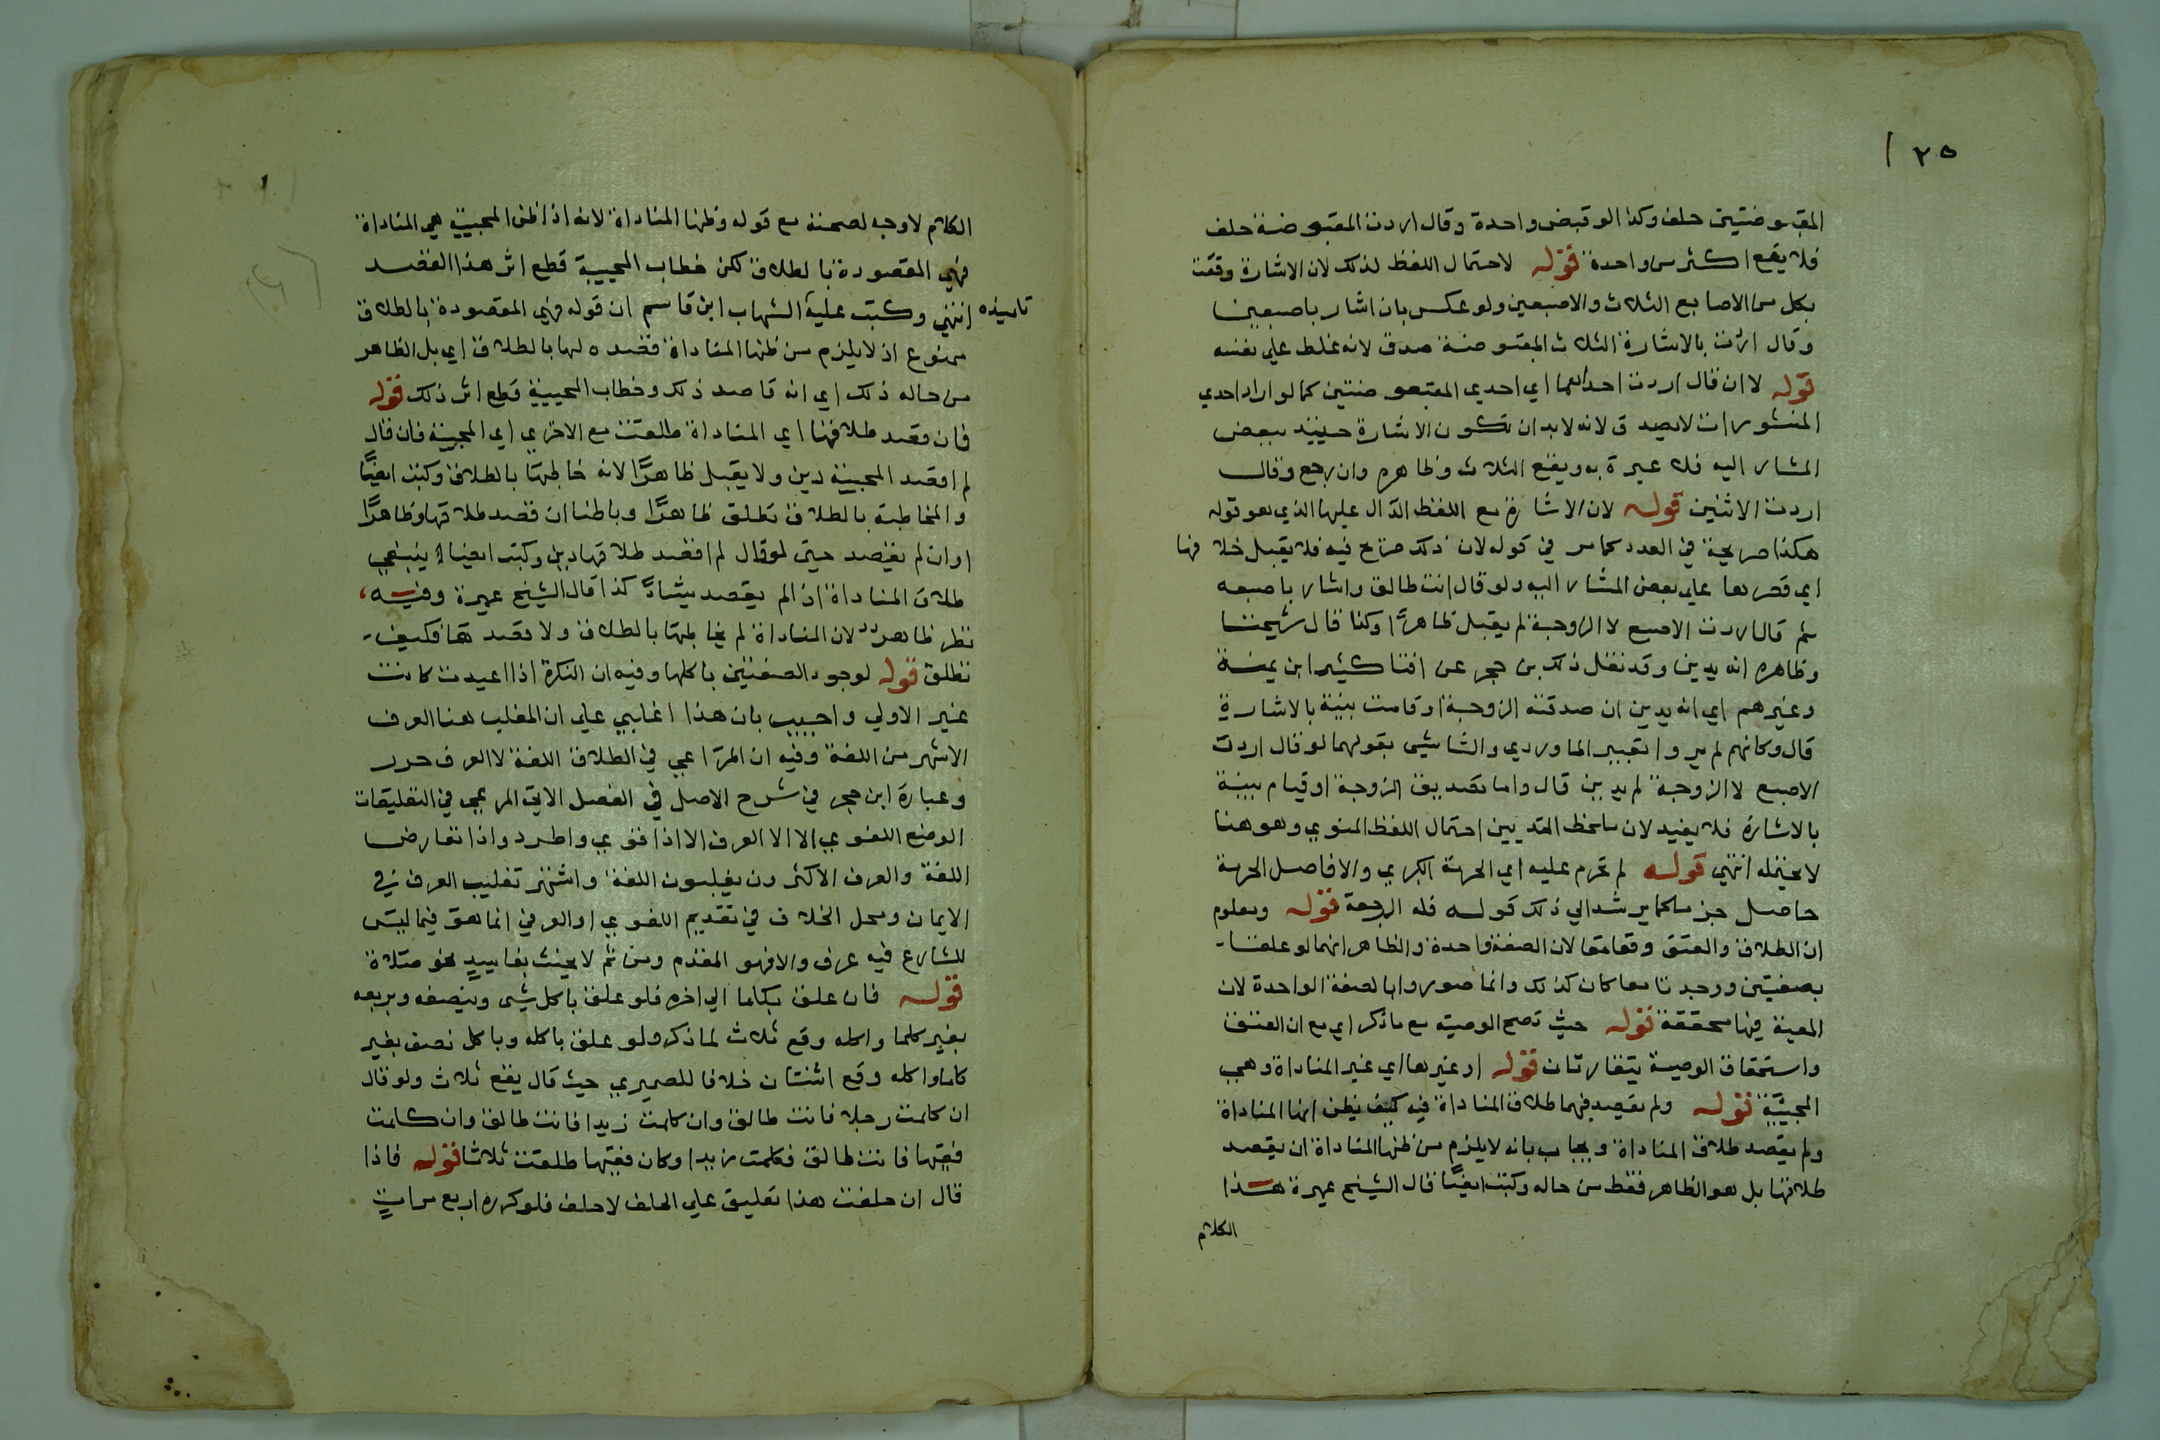 ٢٥
المقبوضتين حلف وكذا لو قبض واحدة وقال اردت المقبوضة حلف
فلا يقع اكثر من واحدة قوله لاحتمال اللفظ لذلك لان الاشارة وقعت
بكل من الاصابع الثلاث والاصبعين ولو عكس بان اشار باصبعين
وقال اردت بالاشارة الثلاث المقبوضة صدق لانه غلظ على نفسه
قوله لا ان قال اردت احداهما اي احدي المقبوضتين كما لو اراد احدي
المنشورات لا يصدق لانه لا بد ان تكون الاشارة حينيذ ببعض
المشار اليه فلا عبرة به ويقع الثلاث وظاهره وان رجع وقال
اردت الاثنين قوله لان الاشارة مع اللفظ الدال عليها الذي هو قوله
هكذا صريحة في العدد كما مر في قوله لان ذلك صريح فيه فلا يقبل خلافها
اي قصرها علي بعض المشار اليه ولو قال انت طالق واشار باصبعه
ثم قال اردت الاصبع لا الزوجة لم يقبل ظاهرًا وكذا قال شيخنا
وظاهره انه يدين وقد نقل ذلك بن حجر عن افتا كثير ابن يمنة
وغيرهم اي انه يدين ان صدقته الزوجة او قامت بينة بالاشارة
قال وكانهم لم يروا تعبير الماوردي والشاشي بقولهما لو قال اردت
الاصبع لا الزوجة لم يدين قال واما تصديق الزوجة او قيام بينة
بالاشارة فلا يفيد لان ملحظ التديين احتمال اللفظ المنوي وهو هنا
لا يحتمله انتهي قوله لم تحرم عليه اي الحرمة الكبري والا فاصل الحرمة
حاصل جزما كما يرشد الي ذلك قوله فله الرجعة قوله ومعلوم
ان الطلاق والعتق وقعا معا لان الصفة واحدة والظاهر انهما لو علقا
بصفتين ووجدتا معا كان كذلك وانما صوروا بالصفة الواحدة لان
المعية فيها محققة قوله حيث تصح الوصية مع ما ذكر اي مع ان العتق
واستحقاق الوصية يتقارنان قوله او غيرها اي غير المناداة وهي
المجيبة قوله ولم يقصد فيهما طلاق المناداة فيه كيف يظن انها المناداة
ولم يقصد طلاق المناداة ويجاب بانه لا يلزم من ظنها المناداة ان يقصد
طلاقها بل هو الظاهر فقط من حاله وكتب ايضًا قال الشيخ عميرة هذا
الكلام
الكلام لا وجه لصحته مع قوله وظنها المناداة لانه اذا ظن المجيبة هي المناداة
فهي المقصودة بالطلاق لكن خطاب المجيبة قطع اثر هذا القصد
انتهي وكتب عليه تلميذه الشهاب ابن قاسم ان قوله فهي المقصودة بالطلاق
ممنوع اذ لا يلزم من ظنها المناداة قصده لها بالطلاق اي بل الظاهر
من حاله ذلك اي انه قاصد ذلك وخطاب المجيبة قطع اثر ذلك قوله
فان قصد طلاقها اي المناداة طلقت مع الاخري اي المجيبة فان قال
لم اقصد المجيبة دين ولا يقبل ظاهرًا لانه خاطبها بالطلاق وكتب ايضًا
والمخاطبة بالطلاق تطلق ظاهرًا وباطنا ان قصد طلاقها وظاهرًا
اوان لم يقصد حتي لو قال لم اقصد طلاقها دين وكتب ايضا ينبغي
طلاق المناداة اذا لم يقصد شيئًا كذا قال الشيخ عميرة وفيه
نظر ظاهر لان المناداة لم يخاطبها بالطلاق ولا قصدها فكيف
تطلق قوله لوجود الصفتين باكلها وفيه ان النكرة اذا اعيدت كانت
غير الاولي واجيب بان هذا اغلبي علي ان المغلب هنا العرف
الاشهر من اللغة وفيه ان المراعي في الطلاق اللغة لا العرف حرر
وعبارة ابن حجر في شرح الاصل في الفصل الاتي المرعي في التعليقات
الوضع اللغوي الا الا العرف الا اذا قوي واطرد واذا تعارض
اللغة والعرف الاكثرون يغلبون اللغة واشتهر تغليب العرف في
الايمان ومحل الخلاف في تقديم اللغوي او العرفي انما هو فيما ليس
للشارع فيه عرف والا فهو المقدم ومن ثم لا يحنث بفاسد نحو صلاة
قوله فان علق بكلما الي اخره فلو علق باكل شي وبنصفه وبربعه
بغير كلما واكله وقع ثلاث لما ذكر ولو علق باكله وباكل نصف بغير
كلما واكله وقع اثنتان خلافا للصميري حيث قال يقع ثلاث ولو قال
ان كلمت رجلا فانت طالق وان كلمت زيدا فانت طالق وان كلمت
فقيها فانت طالق فكلمت زيدا وكان فقيها طلقت ثلاثا قوله فاذا
قال ان حلفت هذا تعليق علي الحلف لا حلف فلو كرره اربع مرات